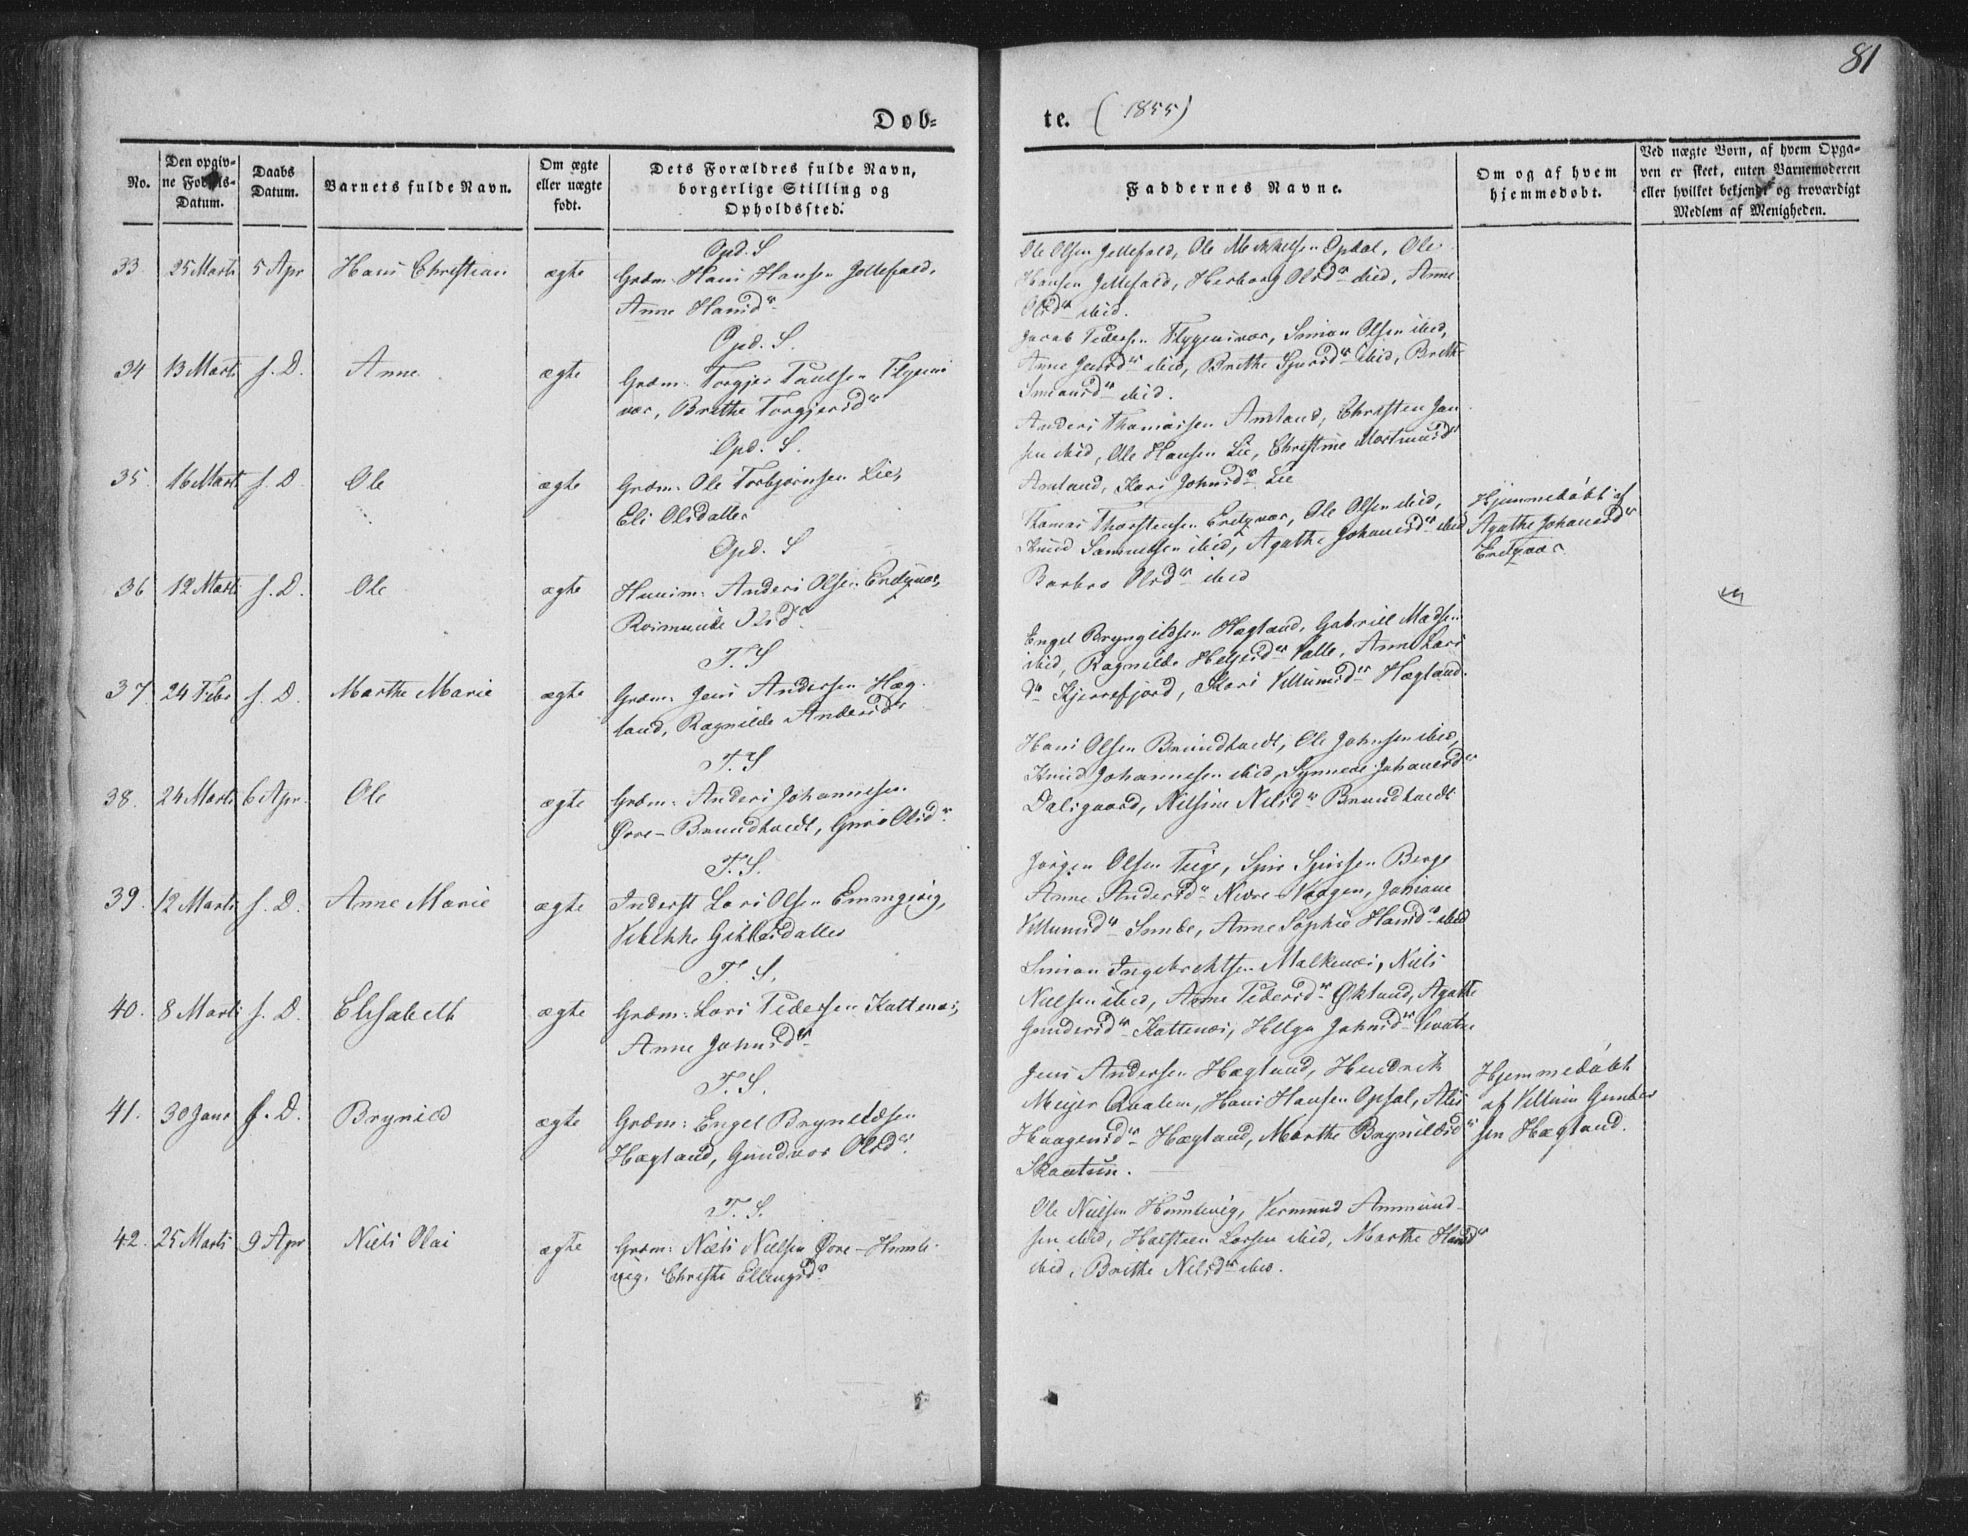 81
Døb-
te. (1855)
No.
Den opgiv-
ne Fødsels-
Datum.
Daabs
Datum.
Barnets fulde Navn.
Om ægte
eller uægte
født.
Dets Forældres fulde Navn,
borgerlige Stilling og
Opholdssted.
Faddernes Navne.
Om og af hvem
hjemmedøbt.
Ved uægte Børn, af hvem Opga-
ven er skeet, enten Barnemoderen
eller hvilket bekjendt og troværdigt
Medlem af Menigheden.
Opd. S
33. 25 Marti 5 Apr Hans Christian ægte Grdm: Hans Hansen
Anne Hansdr
Ole Olsen Ole Mikkelsen Opdal, Ole
Hansen Herborg Olsdr ibid, Anne
Olsdr ibid.
Opd. S.
34 13 Marti s. D. Anne ægte Grdm: Torgjer Paulsen Flygens
vær, Brithe Torgjersdr
Jacob Pedersen Flygensvær, Simon Olsen ibid,
Anne ibid, Brithe ibid, Brithe
Simonsd ibid.
Opd. S.
35. 16 Marti s. D Ole ægte Grdm: Ole Torbjørnsen Lie,
Eli Olsdatter
Anders Thomassen Amland, Christen Jan
sen ibid, Ole Hansen Lie, Christine
Amland, Kari Johnsdr Lie
Opd. S
36 12 Marti s. D. Ole ægte Huusm: Anders Olsen
Olsdr
Thomas Thorstensen Ole Olsen ibid,
Knud Samuelsen ibid, Agathe Johansdr ibid
Barbro Olsdr ibid
Hjemmedøbt af
Agathe Johansdr
T. S
37. 24 Febr s. D. Marthe Marie ægte Grdm: Jens Andersen Hæg-
land, Ragnilde Andersdr
Engel Bryngildsen Hægland, Gabriel Madsen
ibid, Ragnilde Heljesdr Valle, Anne Lars
dr Kjerrefjord, Kari Villumsdr Hægland.
T. S
38. 24 Marti 6 Apr. Ole ægte Grdm: Anders Johannesen
Øvre-Brundtvedt, Guro Olsdr
Hans Olsen Brundtvedt, Ole Johnsen ibid,
Knud Johannesen ibid, Synneve Johansdr
Dalsgaard, Nilsine Nilsdr Brundtvedt
T. S.
39. 12 Marti s. D. Anne Marie ægte Inderst Lars Olsen
Vibekke
Jørgen Olsen Berge
Anne Andersdr Nedre-Vaagen, Johane
Villumsdr Simbe, Anne Sophie Hansdr ibid
T. S.
40. 8 Marti s. D. Elisabeth ægte Grdm: Lars Pedersen Kattenæs,
Anne Johnsdr
Simon Ingebrechtsen Malkenæs, Niels
Nielsen ibid, Anne Pedersdr Økland, Agathe
Gundersdr Kattenæs, Helga Johnsdr
T. S.
41. 30 Janr s. D. Brynild ægte Grdm: Engel Bryneldsen
Hægland, Gundvor Olsdr
Jens Andersen Hægland, Hendrik
Meyer Qvalen, Hans Hansen Opsal,
Haagensdr Hægland, Marthe Bryneldsdr
Skaatun.
Hjemmedøbt
af Villum Gunder
sen Hægland.
T. S.
42. 25 Marti 9 Apr Niels Olai ægte Grdm: Niels Nielsen Øvre-Humle-
vig, Christi Ellingsdr
Ole Nielsen Humlevig, Vermund Ammund-
sen ibid, Halsteen Larsen ibid, Marthe Hansdr
ibid, Brithe Nilsdr ibid.